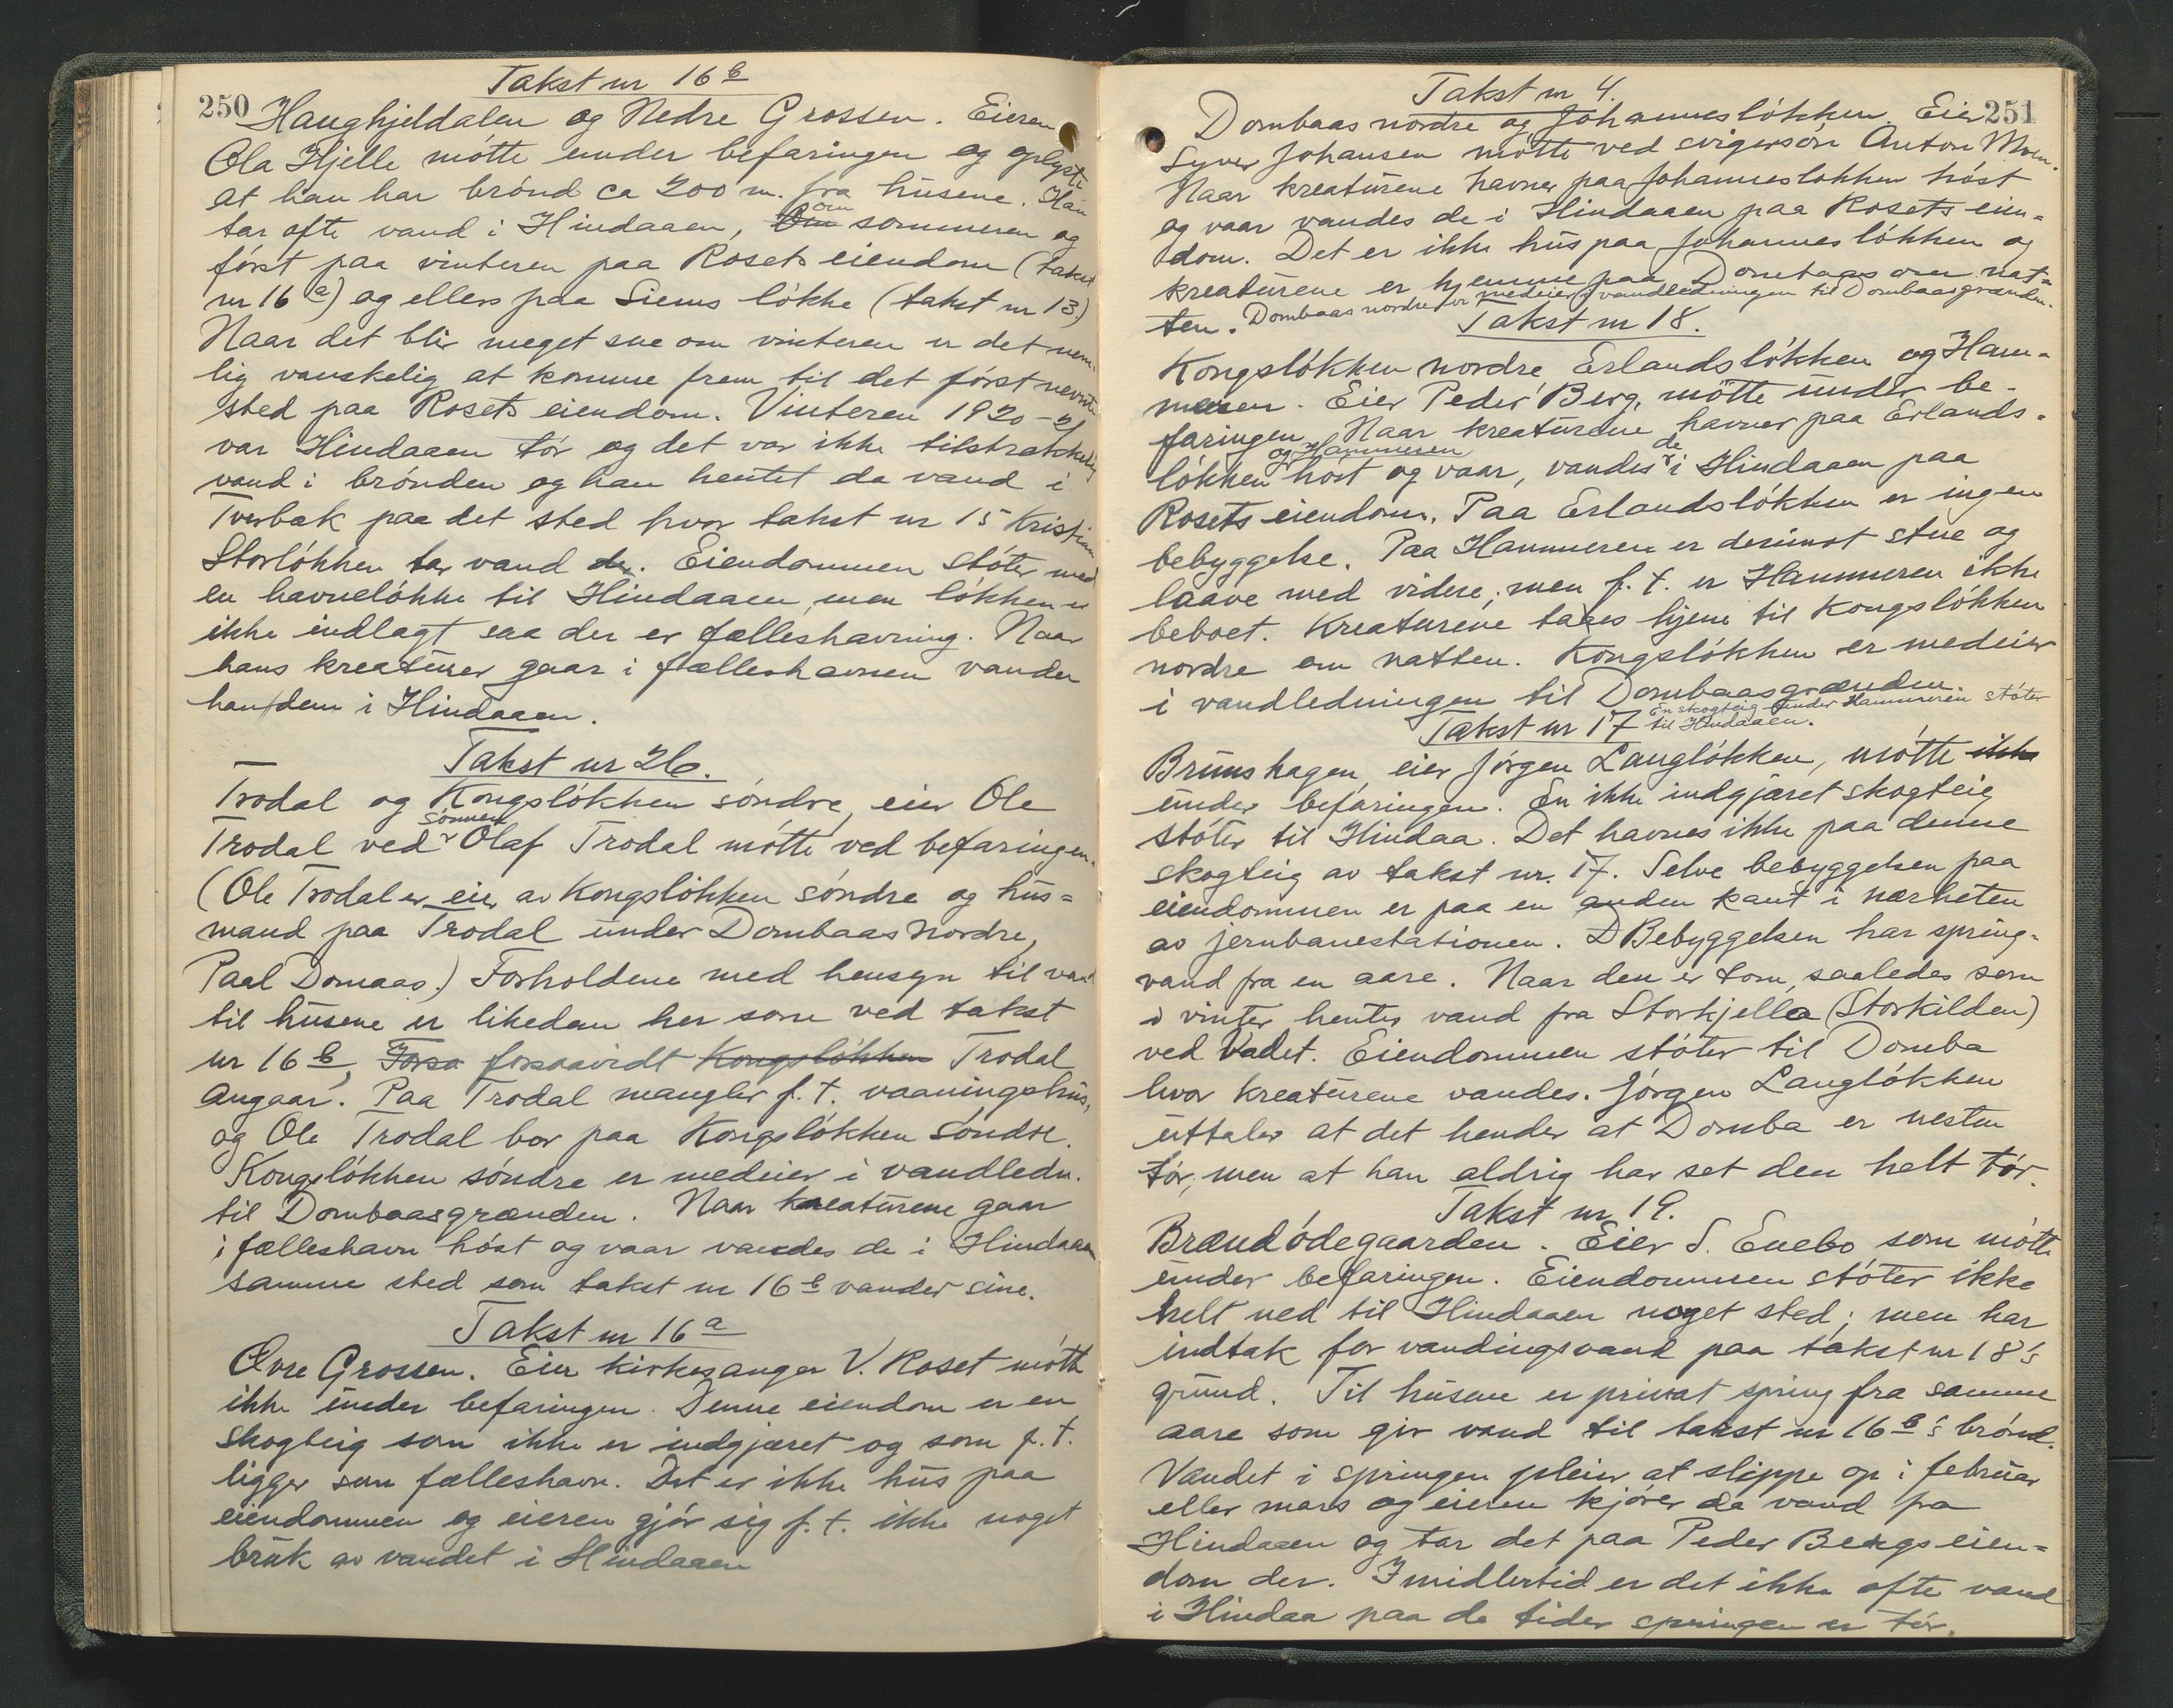 250
Takst nr 16 b
Haughjeldalen og Nedre Grossen. Eieren
Ola Hjelle mótte under befaringen og oplyste
at han har brónd ca 200 m. fra húsene. Han
tar ofte vand i Hindaaen, Om om sommeren og
fórst paa vinteren paa Rosets eiendom (takst
nr 16 a) og ellers paa Siems lókke (takst nr 13.)
Naar det blir meget sne om vinteren er det nem-
lig vanskelig at komme frem til det fórst nevnte
sted paa Rosets eiendom. Vinteren 1920-21
var Hindaaen tór og det var ikke tilstrækkelig
vand i brónden og han hentet da vand i
Tverbæk paa det sted hvor takst nr 15 Kristian
Storlókken tar vand der. Eiendommen stóter med
en havnelókke til Hindaaen, men lókken er
ikke indlagt saa der er fælleshavning. Naar
hans kreatúrer gaar i fælleshavnen vander
han dem i Hindaaen.
Takst nr 26.
Trodal og Kongslókken sóndre, eier Ole
Trodal ved sónnen Olaf Trodal mótte ved befaringen.
(Ole Trodal er eier av Kongslókken sóndre og hús=
mand paa Trodal únder Dombaas nordre,
Paal Domaas.) Forholdene med hensyn til vand
til húsene er likedan her som ved takst
nr 16 b, Forsa forsaavidt Kongslókken Trodal
angaar. Paa Trodal mangler f. t. vaaningshús,
og Ole Trodal bor paa Kongslókken sóndre.
Kongslókken sóndre er medeier i vandledn.
til Dombaasgrænden. Naar kreatúrene gaar
i fælleshavn hóst og vaar vandes de i Hindaaen
samme sted som takst nr 16 b vander sine.
Takst nr 16 a
Óvre Grossen. Eier kirkesanger V. Roset mótte
ikke únder befaringen. Denne eiendom er en
skogteig som ikke er indgjæret og som f. t.
ligger som fælleshavn. Det er ikke hús paa
eiendommen og eieren gjór sig f. t. ikke noget
brúk av vandet i Hindaaen
251
Takst nr 4.
Dombaas nordre og Johanneslókken. Eier
Syver Johansen mótte ved svigersón Anton Moen.
Naar kreatúrene havner paa Johanneslókken hóst
og vaar vandes de i Hindaaen paa Rosets eien=
dom. Det er ikke hús paa Johanneslókken og
kreatúrene er hjemme paa Dombaas om nat=
ten. Dombaas nordre er medeier i vandledningen til Dombaasgrænden.
Takst nr 18.
Kongslókken nordre Erlandslókken og Ham=
meren. Eier Peder Berg, mótte únder be-
faringen. Naar kreatúrene havner paa Erlands-
lókken og Hammeren hóst og vaar, vandes de i Hindaaen paa
Rosets eiendom. Paa Erlandslókken er ingen
bebyggelse. Paa Hammeren er derimot stue og
laave med videre; men f. t. er Hammeren ikke
beboet. Kreatúrene tages hjem til Kongslókken
nordre om natten. Kongslókken er medeier
i vandledningen til Dombaasgrænden.
En skogteig únder Hammeren stóter til Hindaaen.
Takst nr 17
Brúnshagen, eier Jórgen Langlókken, mótte ikke
únder befaringen. En ikke indgjæret skogteig
stóter til Hindaa. Det havnes ikke paa denne
skogteig av takst nr. 17. Selve bebyggelsen paa
eiendommen er paa en anden kant i nærheten
av jernbanestationen. Bebyggelsen har spring-
vand fra en aare. Naar den er tom, saaledes som
i vinter hentes vand fra Storkjella (Storkilden)
ved Vadet. Eiendommen stóter til Domba
hvor kreatúrene vandes. Jórgen Langlókken
úttaler at det hender at Domba er nesten
tór, men at han aldrig har set den helt tór.
Takst nr 19.
Brændódegaarden. Eier S. Enebo som mótte
únder befaringen. Eiendommen stóter ikke
helt ned til Hindaaen noget sted; men har
indtak for vandingsvand paa takst nr 18's
grúnd. Til húsene er privat spring fra samme
aare som gir vand til takst nr 16 b's brónd.
Vandet i springen pleier at slippe op i febrúar
eller mars og eieren kjórer da vand fra
Hindaaen og tar det paa Peder Bergs eien=
dom der. Imidlertid er det ikke ofte vand
i Hindaa paa de tider springen er tór.